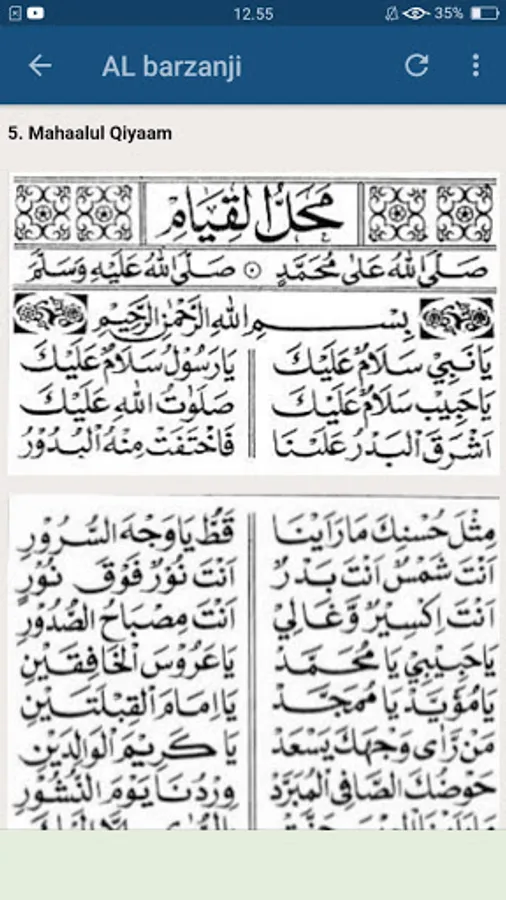 12.55
35%
AL barzanji
5. Mahaalul Qiyaam
مَحَلُّ الْقِيَامِ
صَلَّى اللهُ عَلٰى مُحَمَّدٍ ۞ صَلَّى اللهُ عَلَيْهِ وَسَلَّمْ
بِسْمِ اللهِ الرَّحْمٰنِ الرَّحِيْمِ
يَا نَبِيْ سَلَامٌ عَلَيْكَ يَا رَسُوْلْ سَلَامٌ عَلَيْكَ
يَا حَبِيْبْ سَلَامٌ عَلَيْكَ صَلَوٰتُ اللهِ عَلَيْكَ
اَشْرَقَ الْبَدْرُ عَلَيْنَا فَاخْتَفَتْ مِنْهُ الْبُدُوْرُ
مِثْلَ حُسْنِكَ مَا رَاَيْنَا قَطُّ يَا وَجْهَ السُّرُوْرِ
اَنْتَ شَمْسٌ اَنْتَ بَدْرٌ اَنْتَ نُوْرٌ فَوْقَ نُوْرٍ
اَنْتَ اِكْسِيْرٌ وَّغَالِيْ اَنْتَ مِصْبَاحُ الصُّدُوْرِ
يَا حَبِيْبِيْ يَا مُحَمَّدْ يَا عَرُوْسَ الْخَافِقَيْنِ
يَا مُؤَيَّدْ يَا مُمَجَّدْ يَا اِمَامَ الْقِبْلَتَيْنِ
مَنْ رَّاٰى وَجْهَكَ يَسْعَدْ يَا كَرِيْمَ الْوَالِدَيْنِ
حَوْضُكَ الصَّافِى الْمُبَرَّدْ وِرْدُنَا يَوْمَ النُّشُوْرِ